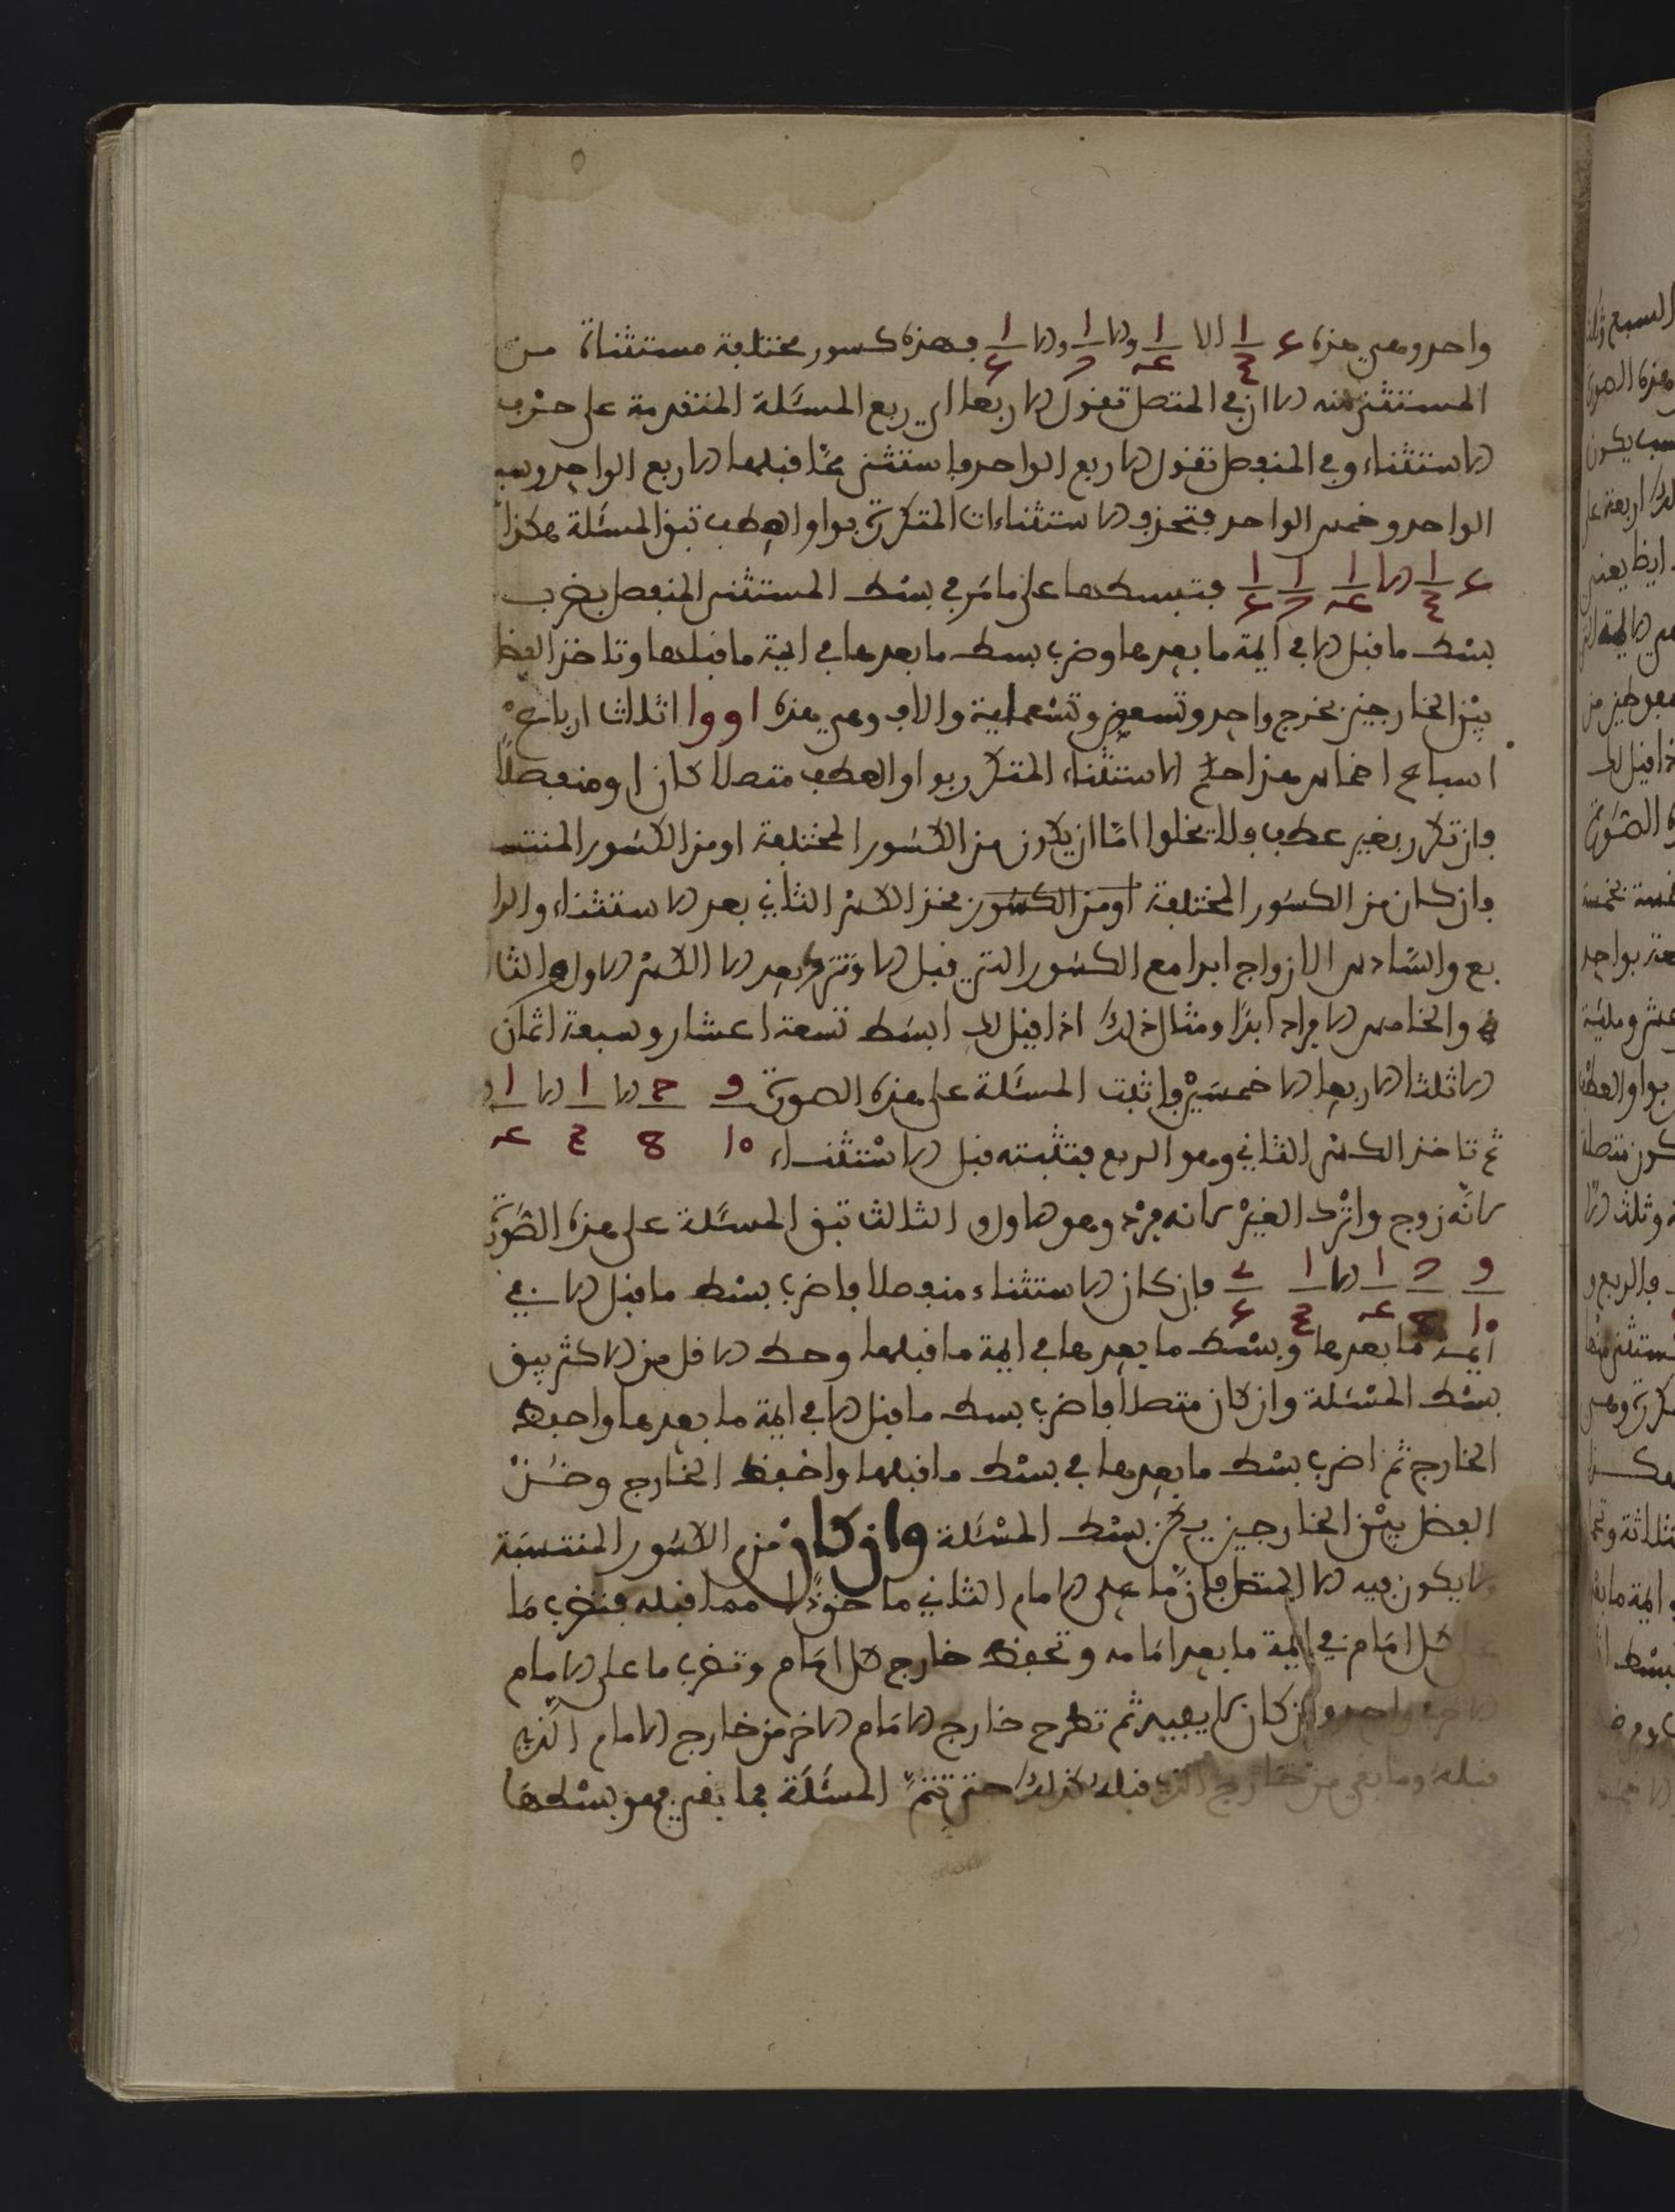 واحد وهي هذه ٤ ١/٣ الا ١/٤ والا ١/٧ والا ١/٥ فهذه كسور مختلفة مستثناة من
المستثنى منه الا ان في المتصل تقول الا ربعا اي ربع المسئلة المتقدمة على حرف
الاستثناء وفي المنفصل تقول الا ربع الواحد فاستثنى مما قبلها الا ربع الواحد وسبع
الواحد وخمس الواحد فتحذف الاستثناءات المتكررة بواو العطف تبقى المسئلة هكذا
٤ ١/٣ الا ١/٤ ١/٧ ١/٥ فتبسطها على ما مر في بسط المستثنى المنفصل بضرب
بسط ما قبل الا في ايمة ما بعدها وضرب بسط ما بعدها في ايمة ما قبلها وتاخذ الفضل
بين الخارجين يخرج واحد وتسعون وتسعماية والاف وهي هذه ١٩٩١ اثلاث ارباع
اسباع اخماس هذا حكم الاستثناء المتكرر بواو العطف متصلا كان او منفصلا
وان تكرر بغير عطف فلا يخلوا اما ان يكون من الكسور المختلفة او من الكسور المنتسبة
فان كان من الكسور المختلفة او من الكسور فخذ الكسر الثاني بعد الاستثناء والرا
بع والسادس الازواج ابدا مع الكسور التي قبل الا وتترك بعد الا الكسر الاول والثا
لث والخامس الافراد ابدا ومثال ذلك اذا قيل لك ابسط تسعة اعشار وسبعة اثمان
الا ثلثا الا ربعا الا خمسين فاثبت المسئلة على هذه الصورة ٩ ٧ الا ١ الا ١ الا
ثم تاخذ الكسر الثاني وهو الربع فتثبته قبل الاستثناء ١٠ ٨ ٣ ٤
لانه زوج واترك الغير لانه فرد وهو الاول والثالث تبقى المسئلة على هذه الصورة
٩/١٠ ٧/٨ ١/٤ الا ١/٣ ٢/٥ فان كان الاستثناء منفصلا فاضرب بسط ما قبل الا في
ايمة ما بعدها وبسط ما بعدها في ايمة ما قبلها وحط الاقل من الاكثر يبق
بسط المسئلة وان كان متصلا فاضرب بسط ما قبل الا في ايمة ما بعدها واحفظ
الخارج ثم اضرب بسط ما بعدها في بسط ما قبلها واحفظ الخارج وخذ
الفضل بين الخارجين يكن بسط المسئلة وان كان من الكسور المنتسبة
لا يكون فيه الا المتصل فان ما على الامام الثاني ماخوذا مما قبله فتضرب ما
على كل امام في ايمة ما بعد امامه وتحفظ خارج كل امام وتضرب ما على الامام
الاخر في واحد وان كان لا يفيد ثم تطرح خارج الامام الاخر من خارج الامام الذي
قبله وما بقي من خارج الذي قبله كذلك حتى تتم المسئلة فما بقي فهو بسطها